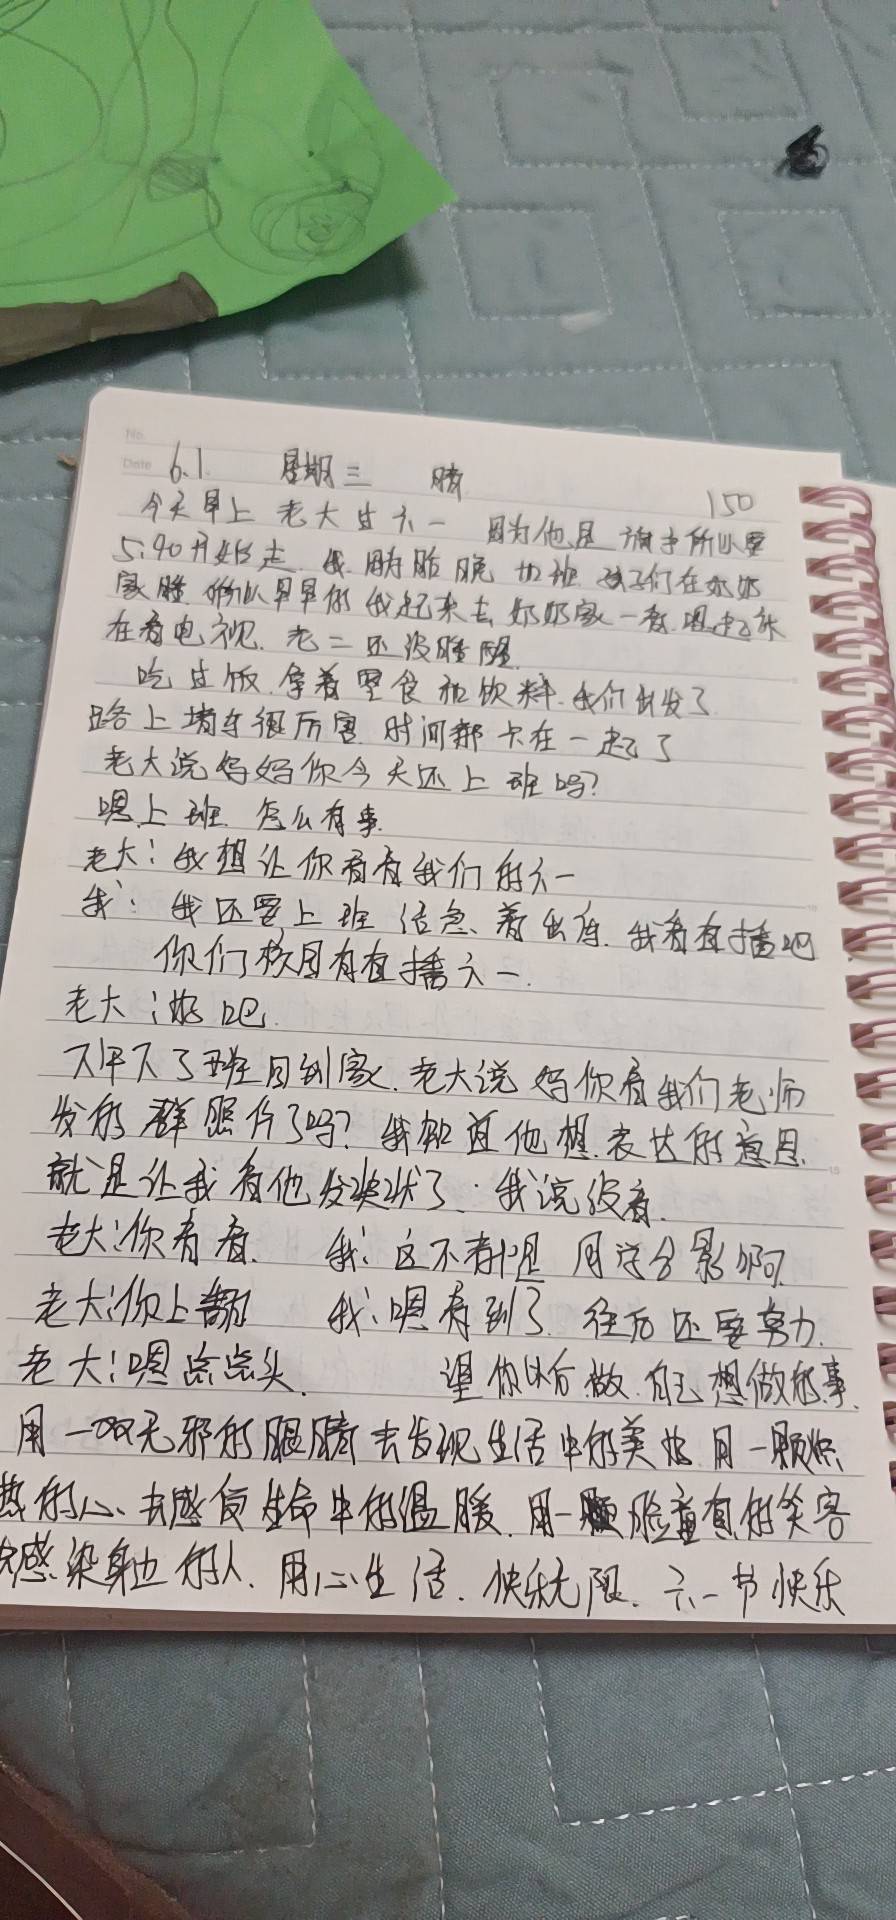 No.
Date 6.1 星期三 晴
150
今天早上 老大过六一 因为他是旗手所以要
5:40开始走. 因为昨晚加班 孩子们在奶奶
家睡. 所以早早的我起来去奶奶家一看.
在看电视. 老二还没睡醒.
吃过饭. 拿着零食和饮料. 我们出发了
路上堵车很厉害. 时间都卡在一起了
老大说妈妈你今天还上班吗?
嗯上班. 怎么有事.
老大: 我想让你看看我们的六一
我: 我还要上班 活急、着出库. 我看直播吧
你们校园有直播六一.
老大: 好吧.
下午下了班回到家. 老大说 妈你看我们老师
发的群照片了吗? 我知道他想表达的意思.
就是让我看他发奖状了. 我说没看.
老大: 你看看. 我: 这不都是同学合影啊.
老大: 你上翻 我: 嗯看到了. 往后还要努力.
老大: 嗯点点头. 望你以后做自己想做的事.
用一双无邪的眼睛去发现生活中的美好 用一颗炽
热的心去感受生命中的温暖. 用一颗脸童真的笑容
去感染身边的人. 用心生活. 快乐无限. 六一节快乐